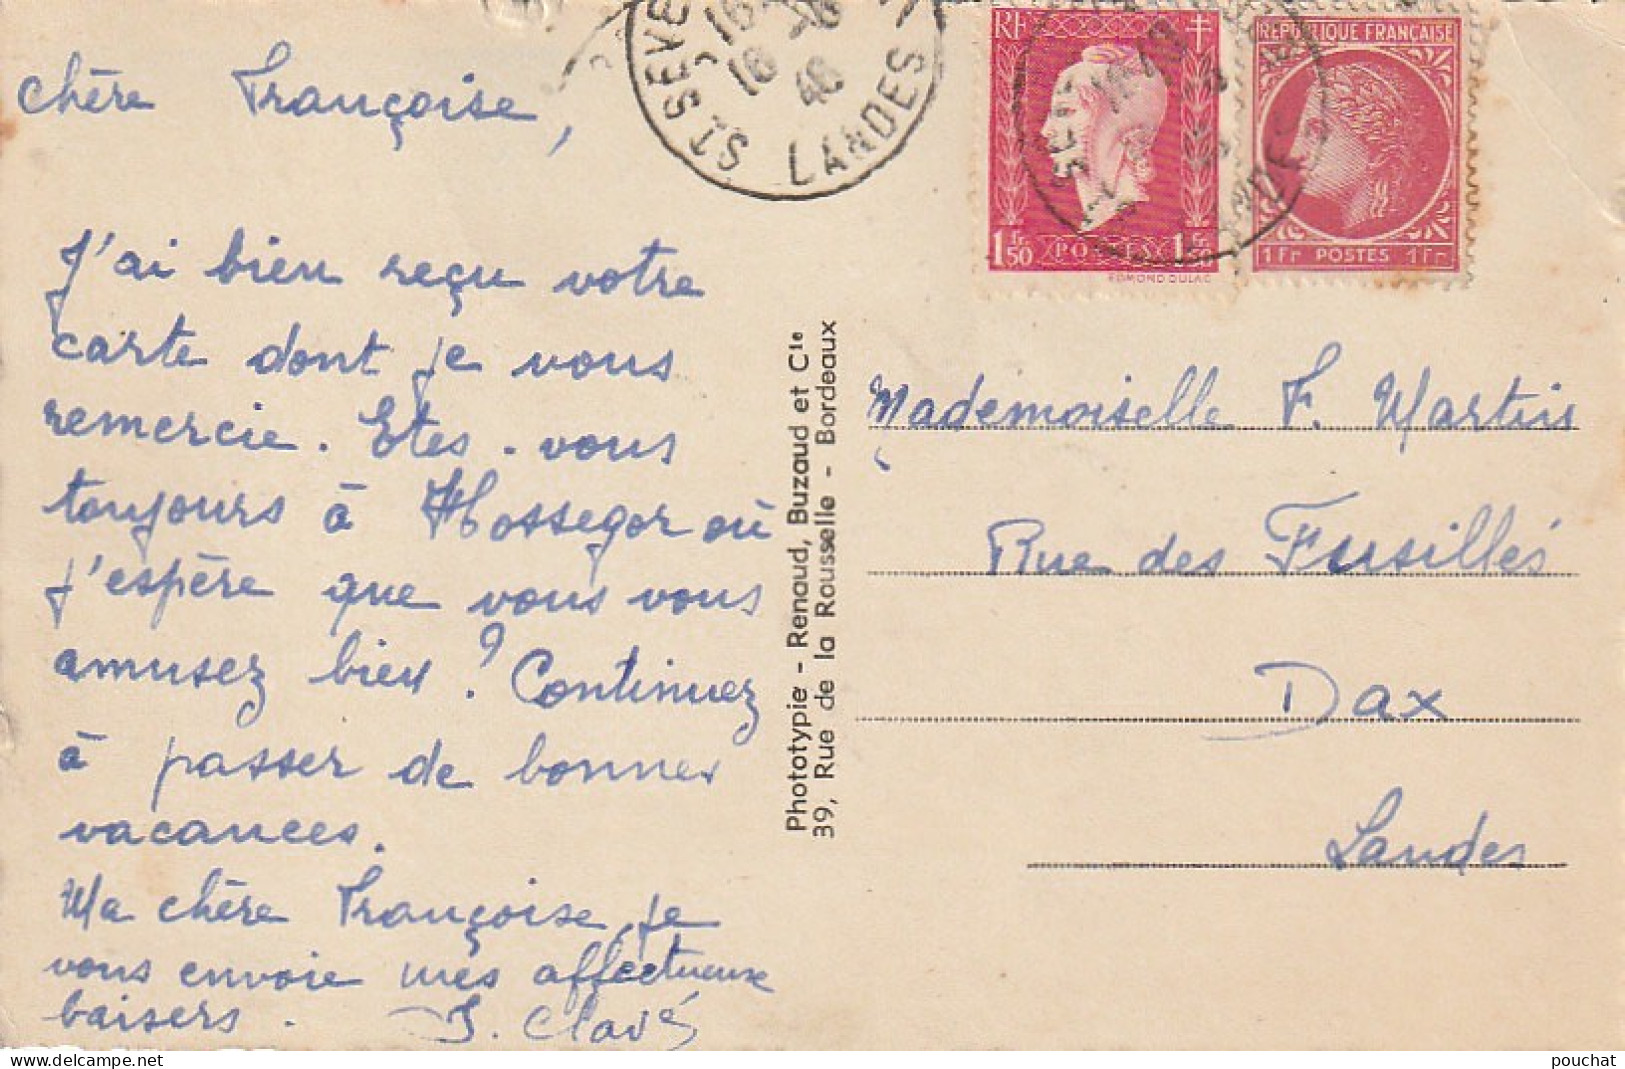 chère Françoise,
J'ai bien reçu votre
carte dont je vous
remercie. Etes-vous
toujours à Hossegor où
j'espère que vous vous
amusez bien? Continuez
à passer de bonnes
vacances.
Ma chère Françoise, je
vous envoie mes affectueux
baisers.
J. Clavé
ST SEVE
16
18
46
LANDES
RF
1 Fr 50 POSTES 1 Fr 50
EDMOND DULAC
REPUBLIQUE FRANÇAISE
1Fr POSTES 1Fr
Phototypie - Renaud, Buzaud et Cie
39, Rue de la Rousselle - Bordeaux
Mademoiselle F. Martin
Rue des Fusillés
Dax
Landes
pouchat